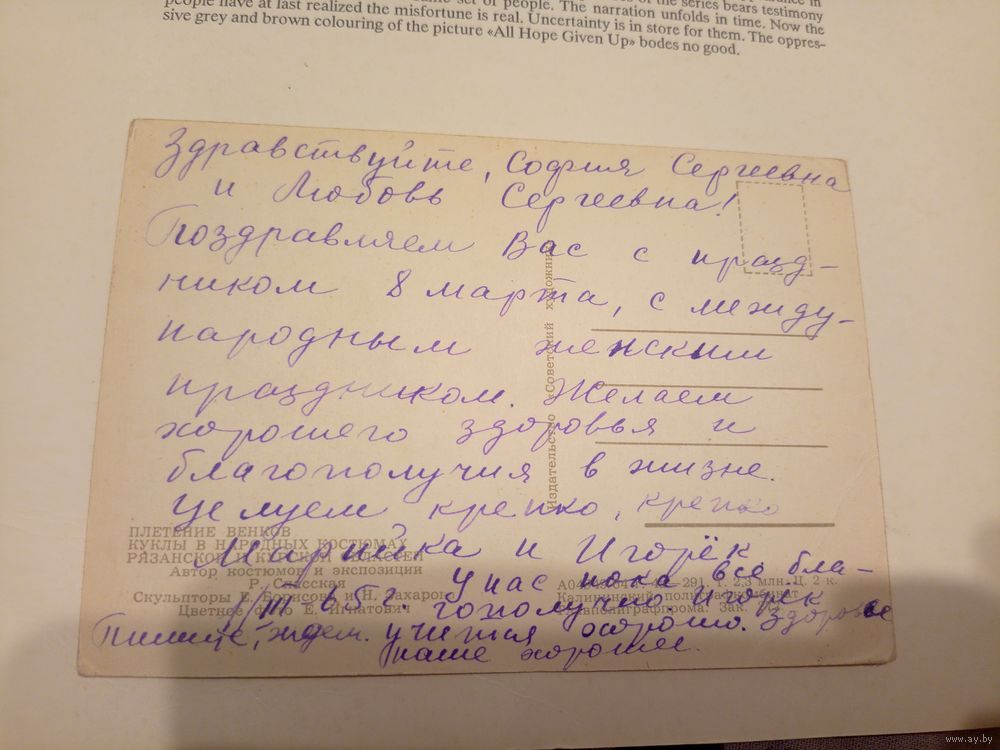 people have at last realized the misfortune is real. Uncertainty is in store for them. The oppres-
sive grey and brown colouring of the picture «All Hope Given Up» bodes no good.
Здравствуйте, София Сергеевна
и Любовь Сергеевна!
Поздравляем Вас с празд-
ником 8 марта, с между-
народным женским
праздником. Желаем
хорошего здоровья и
благополучия в жизне.
Целуем крепко, крепко
Марийка и Игорёк
У нас пока всё бла-
гополучно. Игорёк
учится хорошо. Здоровье
наше хорошее.
Пишите, ждём.
65 г.
Издательство «Советский художник»
ПЛЕТЕНИЕ ВЕНКОВ
КУКЛЫ В НАРОДНЫХ КОСТЮМАХ
РЯЗАНСКОЙ И КУРСКОЙ ОБЛАСТЕЙ
Автор костюмов и экспозиции
Р. Спасская
Скульпторы Е. Борисова и Н. Захаров
Цветное фото Е. Игнатович
291. Т. 2,3 млн. Ц. 2 к.
Калининский полиграфкомбинат
Зак.
www.ay.by